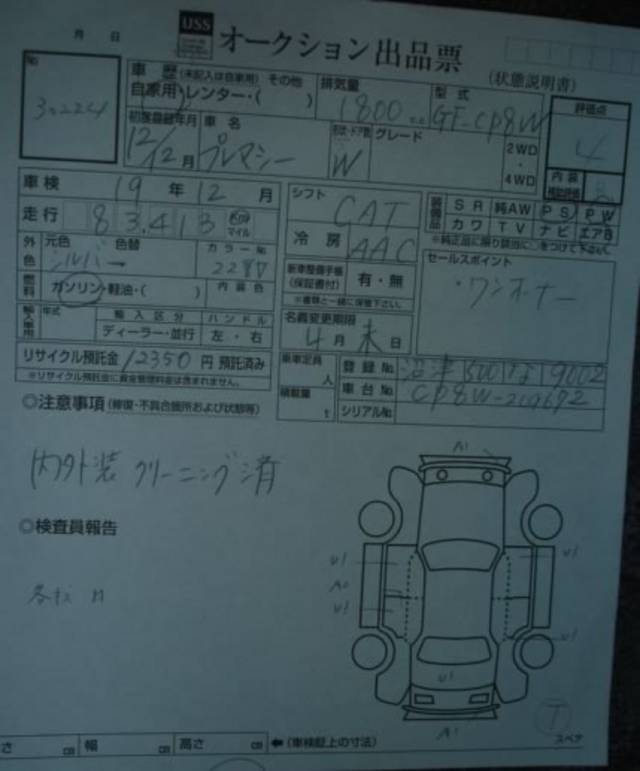 月 日
USS オークション出品票
(状態説明書)
No 30224
車歴 (未記入は自家用) その他
自家用・レンター・( )
排気量 1800 cc
型式 GF-CP8W
評価点 4
初度登録年月 12/12月
車名 プレマシー
形状・ドア数 W
グレード
2WD・4WD
内装
車検 19年 12月
走行 83,413 Km マイル
シフト CAT
冷房 AAC
装備品 SR 純AW PS PW
カワ TV ナビ エアB
※純正品に限り該当に○をつけて下さい。
外色 元色 シルバー 色替 カラーNo. 22V
燃料 ガソリン・軽油・( ) 内装色
新車整備手帳 (保証書付) 有・無
※書類と一緒に保管下さい。
セールスポイント
・ワンオーナー
輸入車用 年式 輸入区分 ハンドル
ディーラー・並行 左・右
名義変更期限
4月末日
リサイクル預託金 12350 円 預託済み
※リサイクル預託金に資金管理料金は含まれません。
乗車定員 人
積載量 t
登録No. 沼津 500 な 9002
車台No. CP8W-209692
シリアルNo.
◎注意事項 (修復・不具合箇所および状態等)
内外装クリーニング済
◎検査員報告
各キズ
A1
U1 U1
A2
U1
U1
U1
A1
T
スペア
さ cm 幅 cm 高さ cm ←(車検証上の寸法)